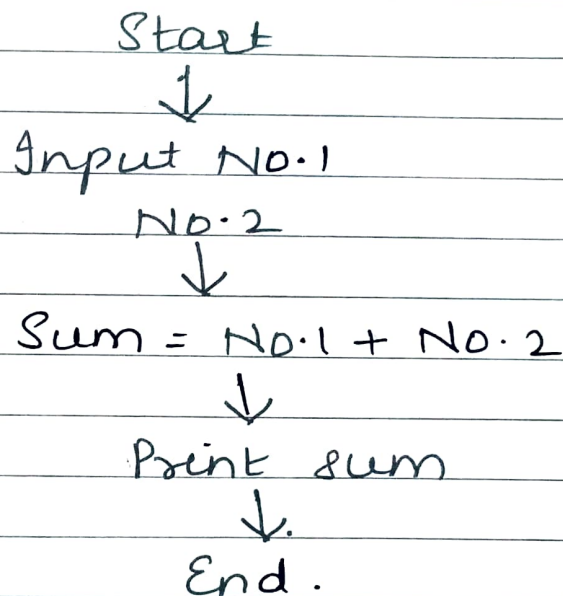 Start
↓
Input No.1
No.2
↓
Sum = No.1 + No.2
↓
Print sum
↓.
End.